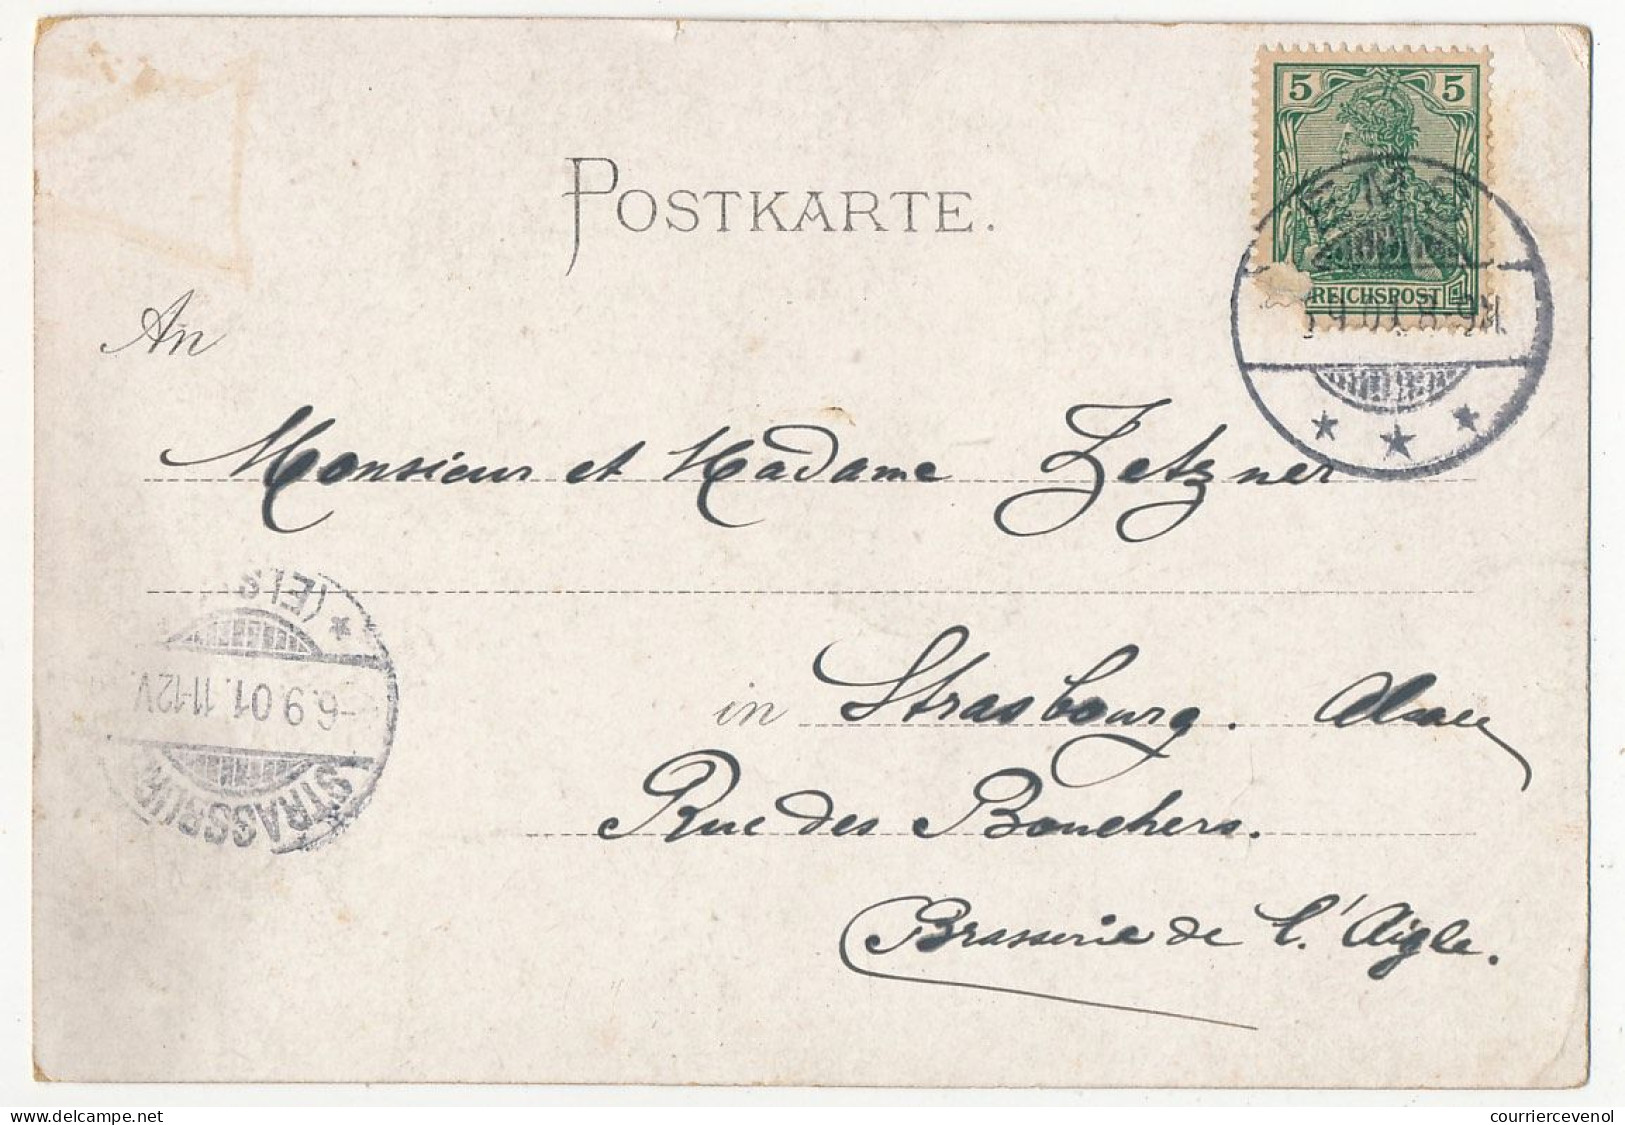 5 5
REICHSPOST
EMS
9.01.8-9N.
POSTKARTE.
An
Monsieur et Madame Zetzner
in Strasbourg. Alsace
Rue des Bouchers.
Brasserie de l'Aigle.
STRASSBURG
-6.9.01.11-12V.
* (ELS
courriercevenol